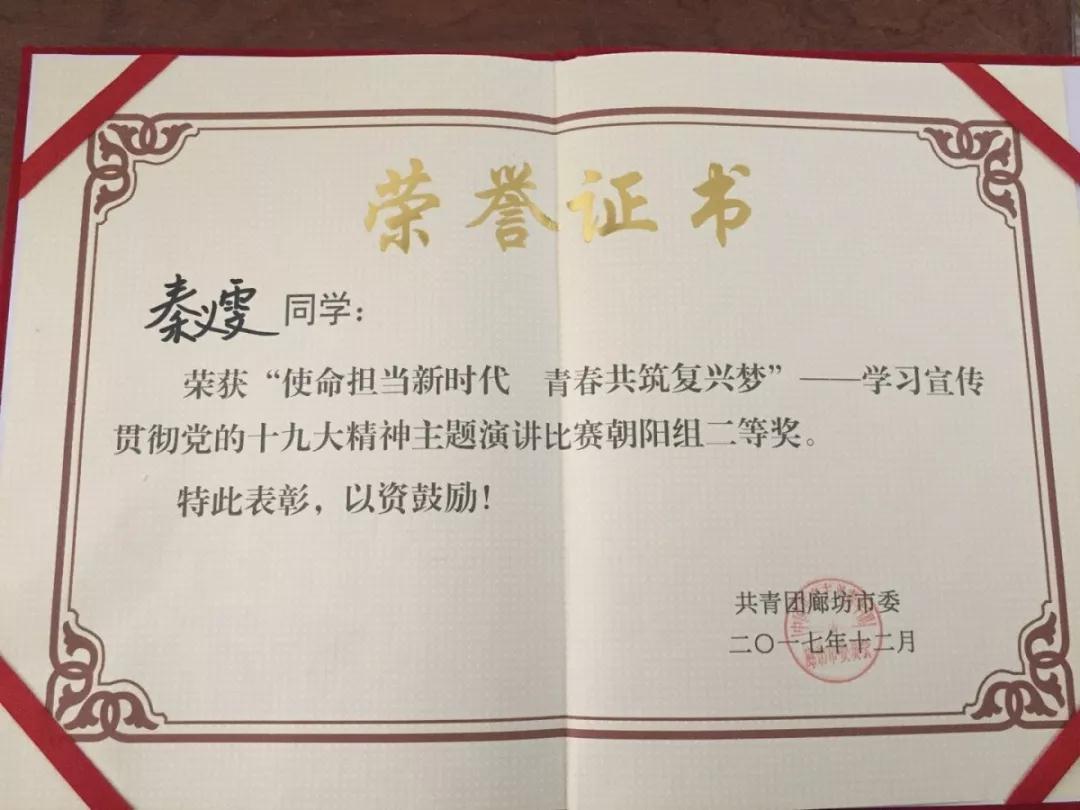 荣誉证书
秦义雯 同学：
荣获“使命担当新时代 青春共筑复兴梦”——学习宣传
贯彻党的十九大精神主题演讲比赛朝阳组二等奖。
特此表彰，以资鼓励！
共青团廊坊市委
二〇一七年十二月